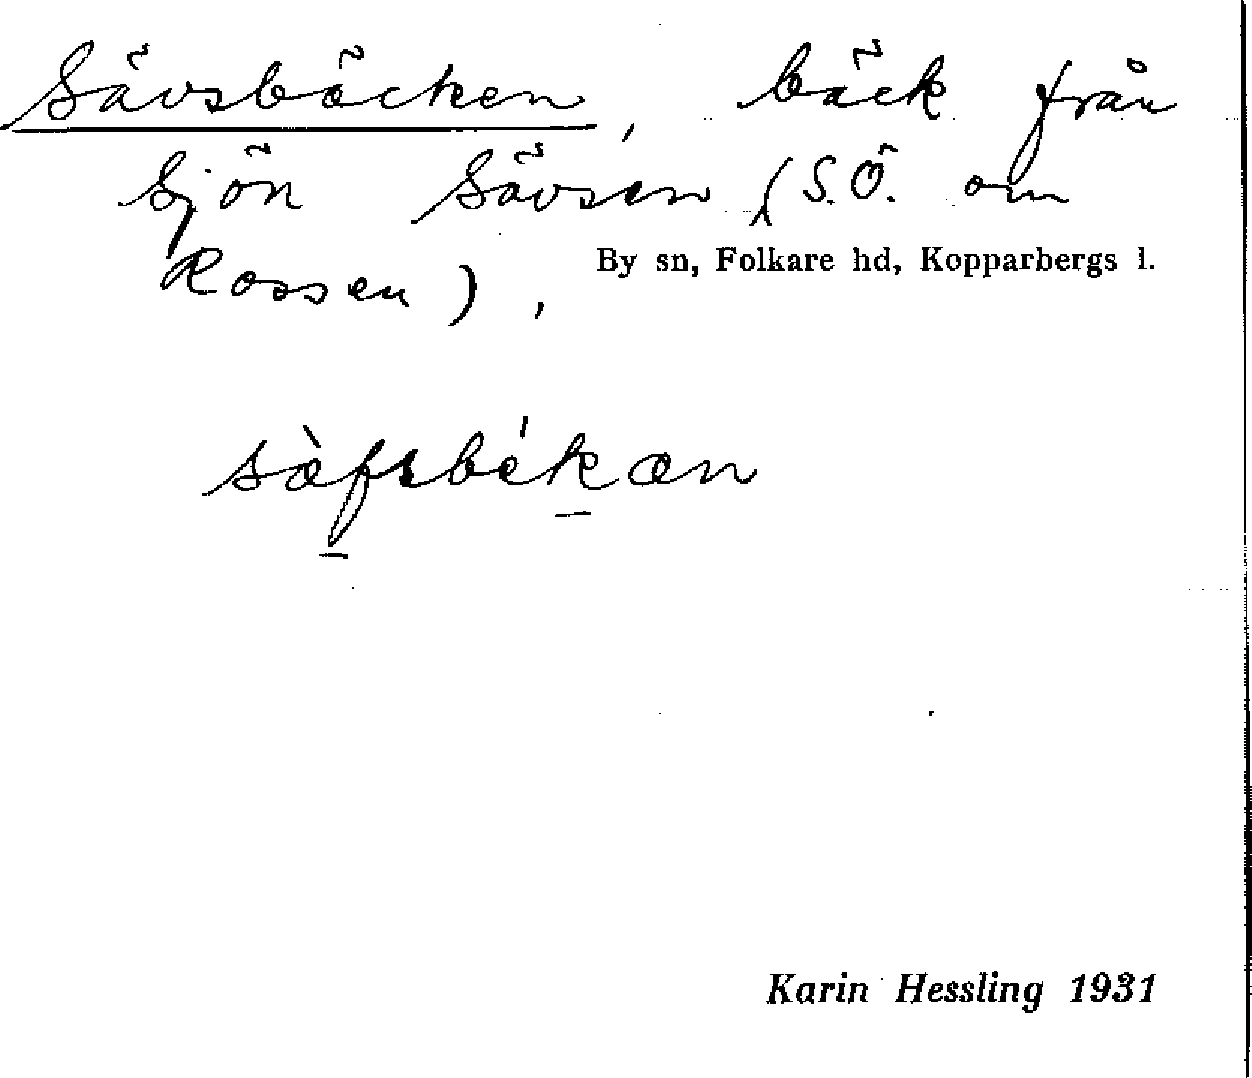 Sävsbäcken, bäck från
Sjön Sävsen (S.Ö. om
Rossen),
By sn, Folkare hd, Kopparbergs l.
sæ̀fsbékæn
Karin Hessling 1931